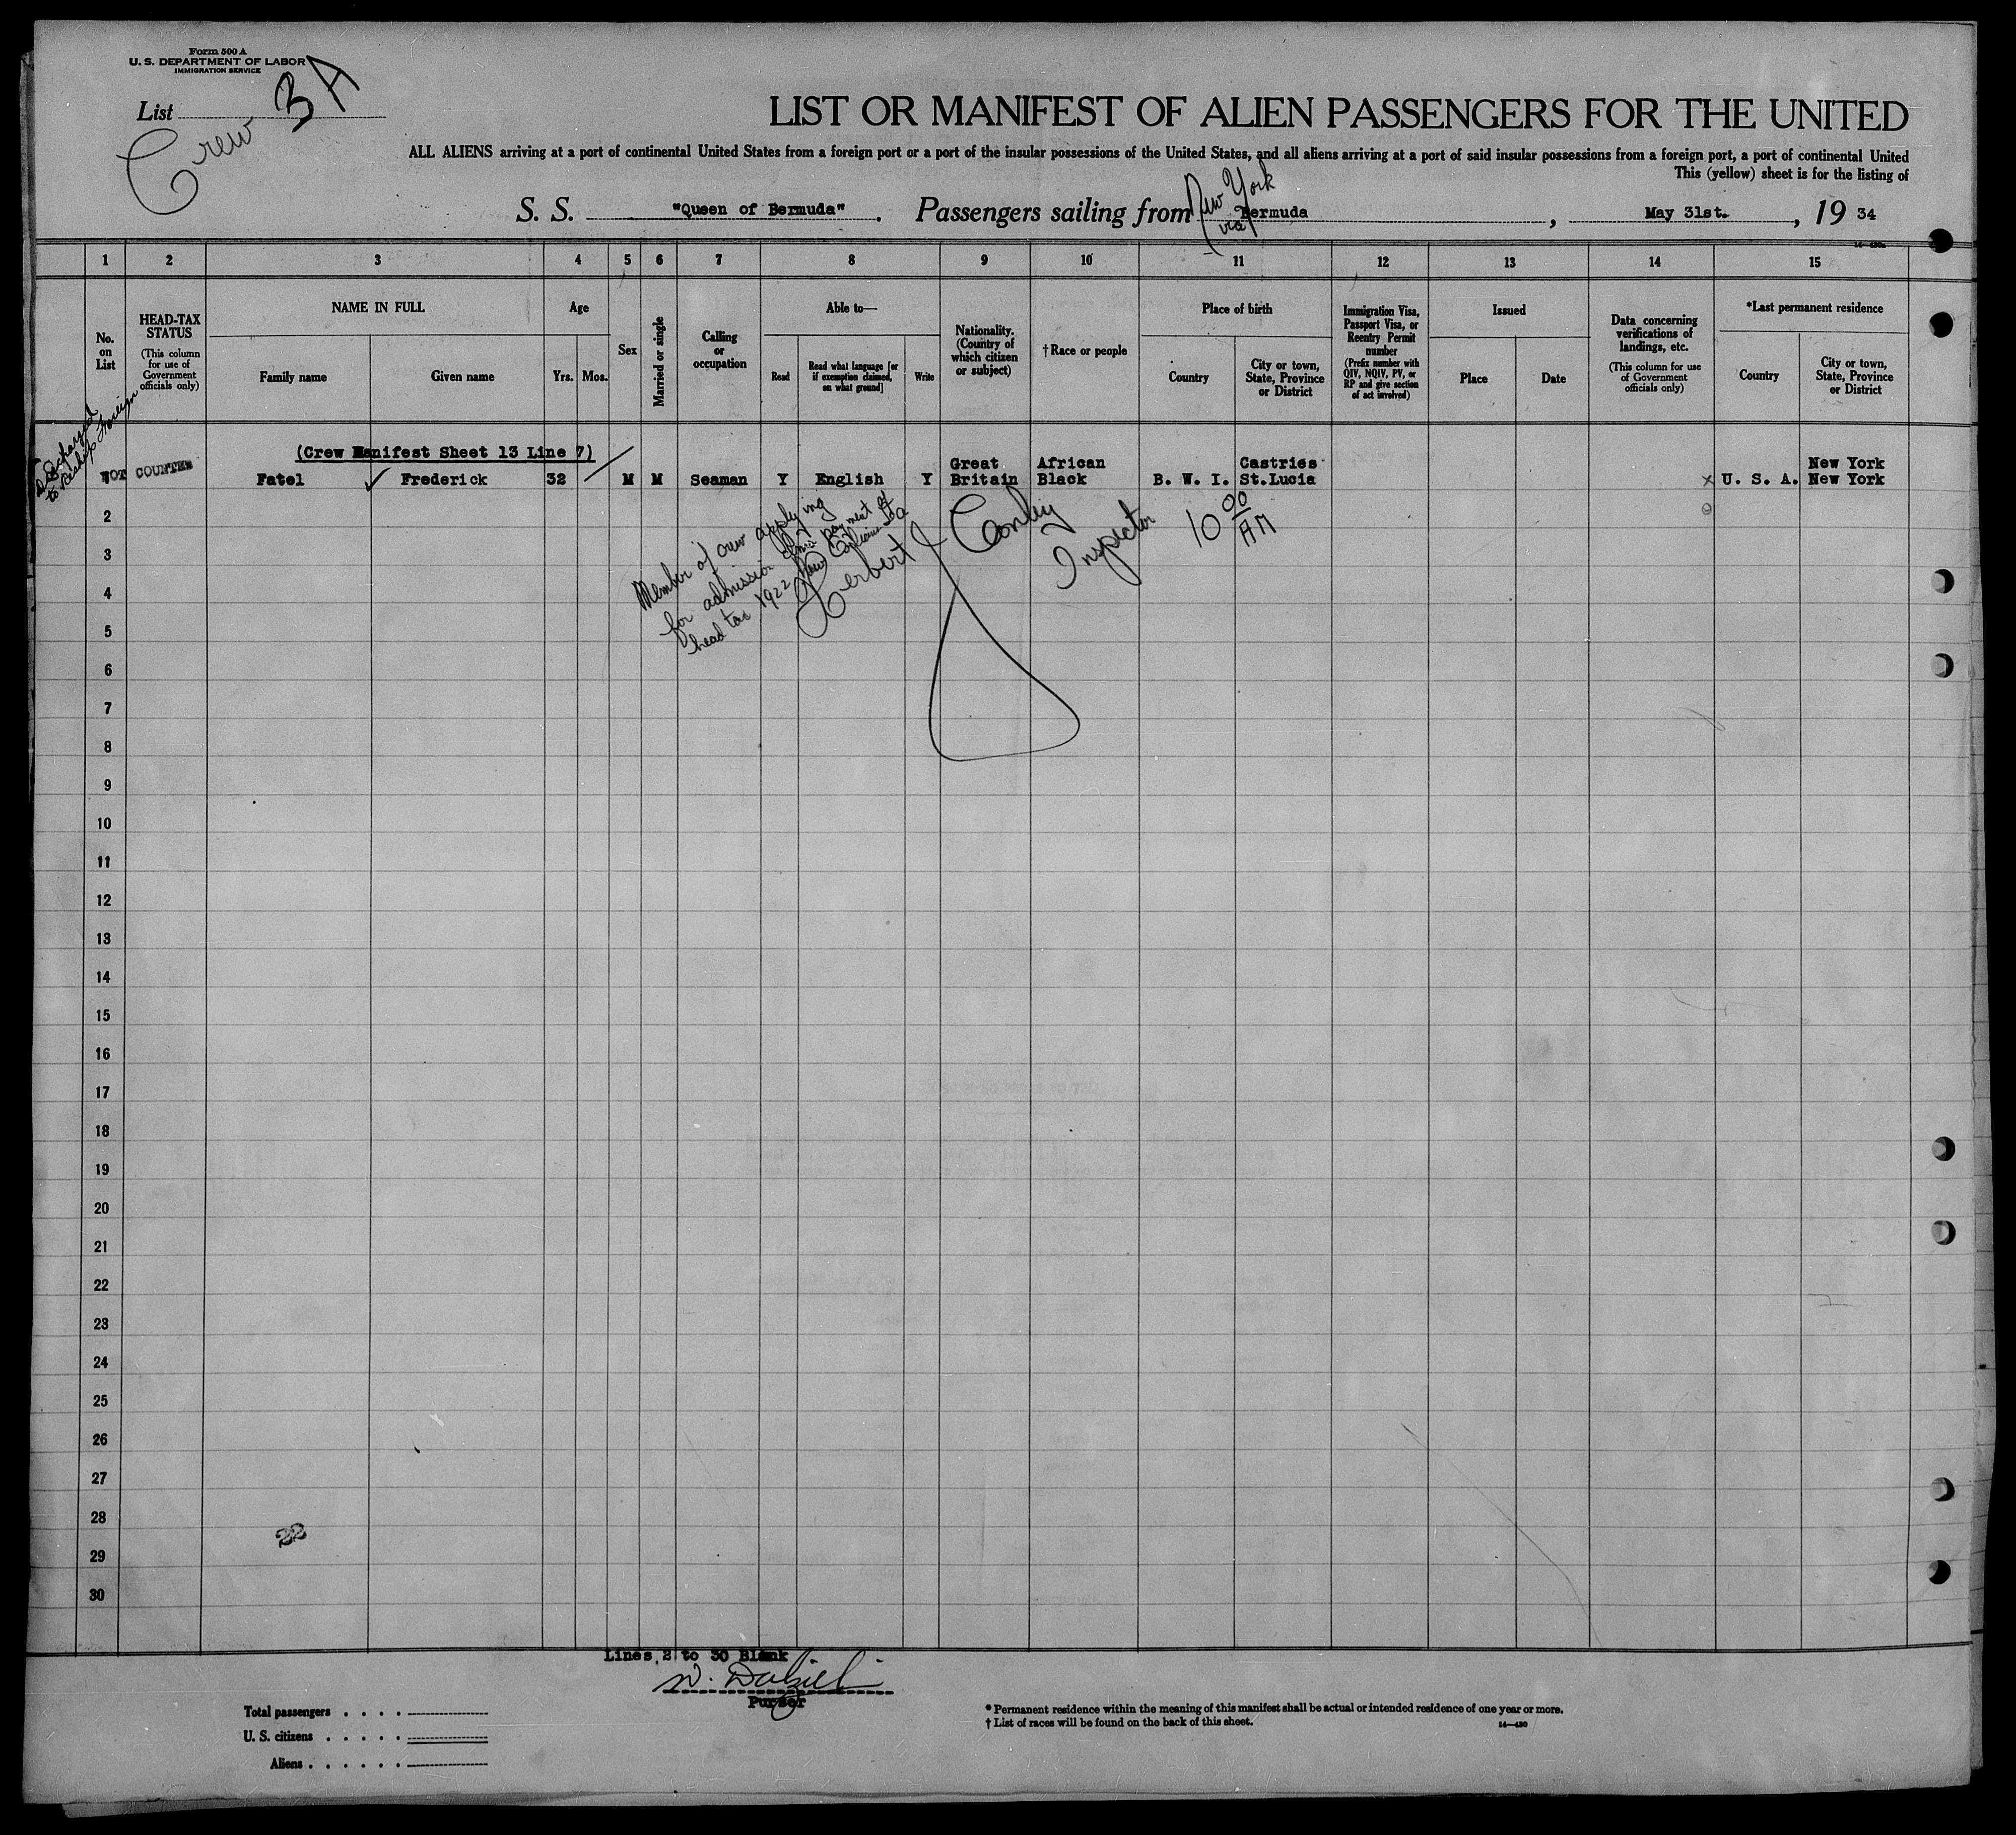 Form 500 A
U. S. DEPARTMENT OF LABOR
IMMIGRATION SERVICE
List
Crew 3 A
LIST OR MANIFEST OF ALIEN PASSENGERS FOR THE UNITED
ALL ALIENS arriving at a port of continental United States from a foreign port or a port of the insular possessions of the United States, and all aliens arriving at a port of said insular possessions from a foreign port, a port of continental United
This (yellow) sheet is for the listing of
New York
via
S. S. "Queen of Bermuda". Passengers sailing from Bermuda, May 31st., 19 34
1 2 3 4 5 6 7 8 9 10 11 12 13 14 15
No. on List
HEAD-TAX STATUS
(This column for use of Government officials only)
NAME IN FULL
Family name
Given name
Age
Yrs.
Mos.
Sex
Married or single
Calling or occupation
Able to—
Read
Read what language [or if exemption claimed, on what ground]
Write
Nationality. (Country of which citizen or subject)
†Race or people
Place of birth
Country
City or town, State, Province or District
Immigration Visa, Passport Visa, or Reentry Permit number
(Prefix number with QIV, NQIV, PV, or RP and give section of act involved)
Issued
Place
Date
Data concerning verifications of landings, etc.
(This column for use of Government officials only)
*Last permanent residence
Country
City or town, State, Province or District
Discharged
to reship foreign
(Crew Manifest Sheet 13 Line 7)
NOT COUNTED
Fatel ✓ Frederick 32 M M Seaman Y English Y Great Britain African Black B. W. I. Castries St.Lucia x U. S. A. New York New York
Member of crew applying
for admission payment of
head tax 1922
Herbert Conley
Inspector
10 00 AM
2
3
4
5
6
7
8
9
10
11
12
13
14
15
16
17
18
19
20
21
22
23
24
25
26
27
28
29
30
22
Lines 2 to 30 Blank
Purser
Total passengers
U. S. citizens
Aliens
* Permanent residence within the meaning of this manifest shall be actual or intended residence of one year or more.
† List of races will be found on the back of this sheet.
14—430